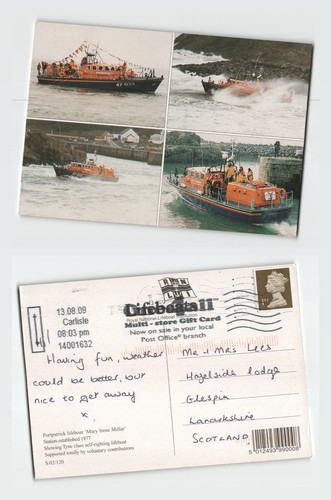 47 023
13.08.09
Carlisle
08:03 pm
14001632
Royal National Lifeboat
Multi - store Gift Card
Now on sale in your local
Post Office branch
Having fun, weather
could be better, but
nice to get away
x.
Mr & Mrs Lees
Hazelside Lodge
Glespin
Lanarkshire
SCOTLAND
Portpatrick lifeboat 'Mary Irene Millar'
Station established 1877
Showing Tyne class self-righting lifeboat
Supported totally by voluntary contributions
S/02/120
5 012493 990008